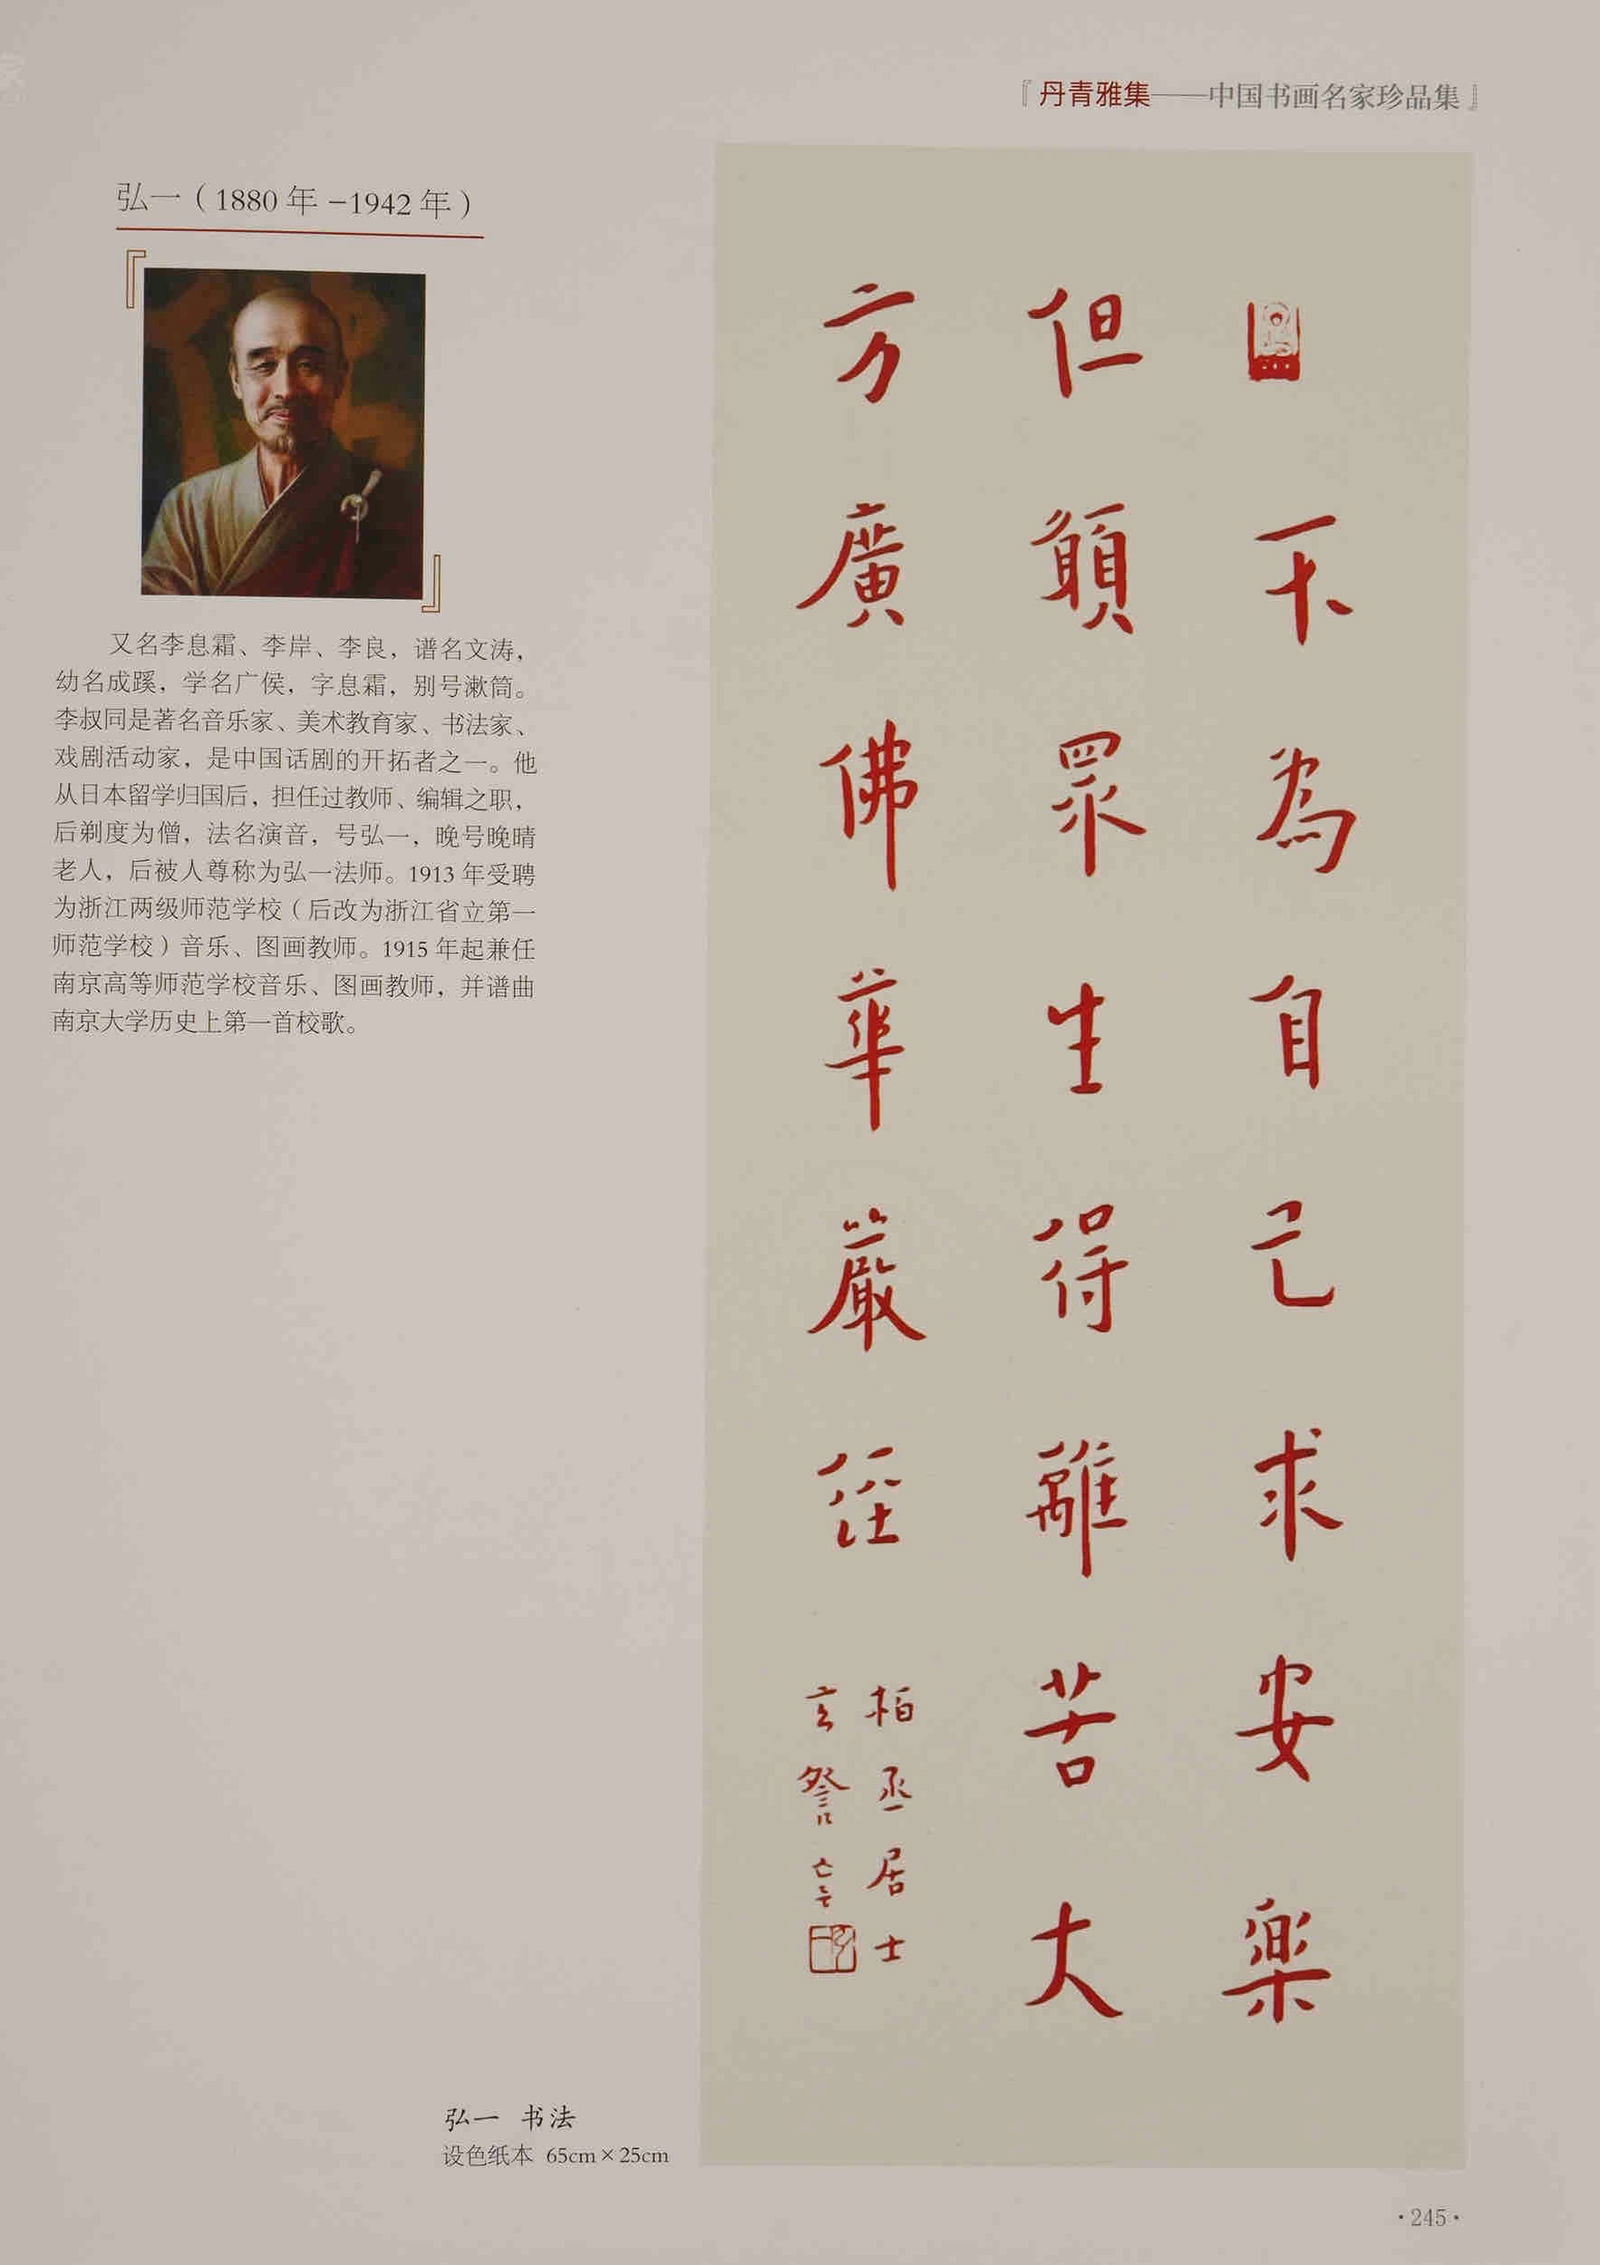 『丹青雅集——中国书画名家珍品集』
弘一（1880年-1942年）
又名李息霜、李岸、李良，谱名文涛，
幼名成蹊，学名广侯，字息霜，别号漱筒。
李叔同是著名音乐家、美术教育家、书法家、
戏剧活动家，是中国话剧的开拓者之一。他
从日本留学归国后，担任过教师、编辑之职，
后剃度为僧，法名演音，号弘一，晚号晚晴
老人，后被人尊称为弘一法师。1913年受聘
为浙江两级师范学校（后改为浙江省立第一
师范学校）音乐、图画教师。1915年起兼任
南京高等师范学校音乐、图画教师，并谱曲
南京大学历史上第一首校歌。
不為自己求安樂
但願眾生得離苦
大方廣佛華嚴經
柏丞居士
玄
弘一 书法
设色纸本 65cm×25cm
·245·